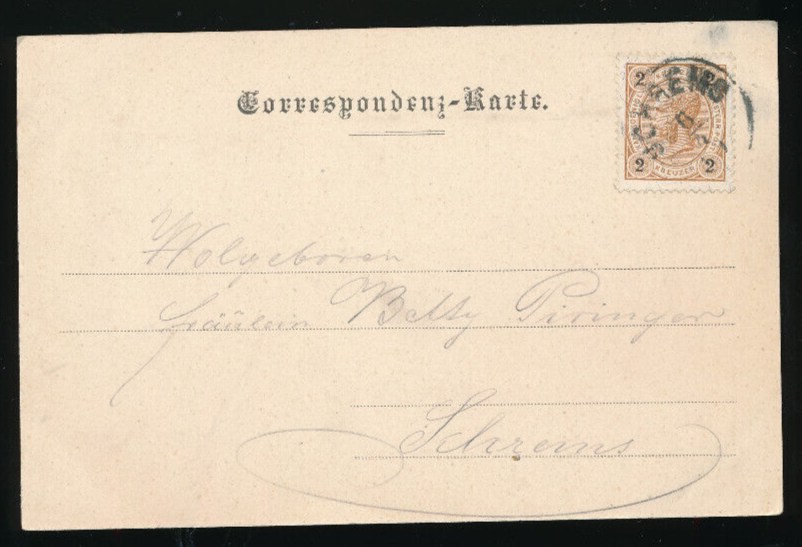 Correspondenz-Karte.
2 2
SCHREMS
6
2 KREUZER 2
Wolgeboren
Fräulein Betty Piringer
Schrems